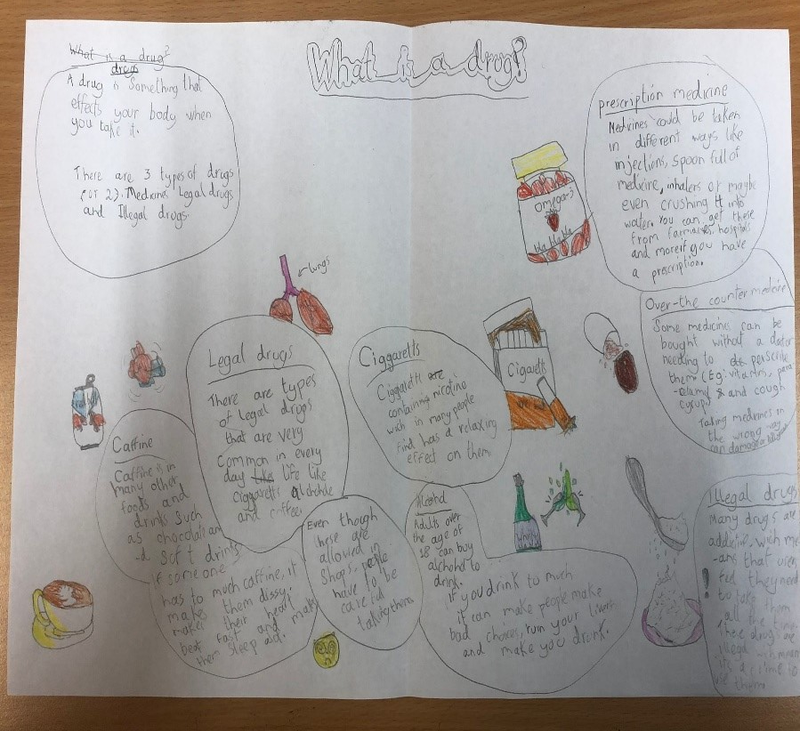 What is a drug?
What is a drug?
drugs
A drug is Something that
effects your body when
you take it.
There are 3 types of drugs
(or 2). Medicine Legal drugs
and Illegal drugs.
prescription medicine
Medicines could be taken
in different ways like
injections, spoon full of
medicine, inhalers or maybe
even crushing it into
water. You can get these
from farmaires, hospitals
and more if you have
a prescription.
Omega-3
bla bla bla
lungs
Over-the counter medicine
Some medicine can be
bought without a doctor
needing to perscribe
them (Eg: vitamins, para
and cough
syrup)
Taking medicines in
the wrong way
can damage
Legal drugs
There are types
of Legal drugs
that are very
common in every
day life like
ciggaretts
and coffee
Ciggaretts
Ciggaretts are
containing nicotine
wich in many people
find has a relaxing
effect on them
Cigaretts
Caffine
Caffine is in
many other
foods and
drinks such
as chocolate an
-d Soft drinks
if someone
has to much caffine, it
makes them dissy.
makes their heart
beat fast and makes
them sleep
Even though
these are
allowed in
Shops, people
have to be
careful
taking them
Alcohol
Adults over
the age of
18 can buy
alchohol to
drink.
if you drink to much
it can make people make
bad choices, ruin your livers
and make you drunk.
Illegal drugs
Many drugs are
addicive, wich me
-ans that users
feel they need
to take them
all the time
These drugs are
illegal
its a crime to
use them